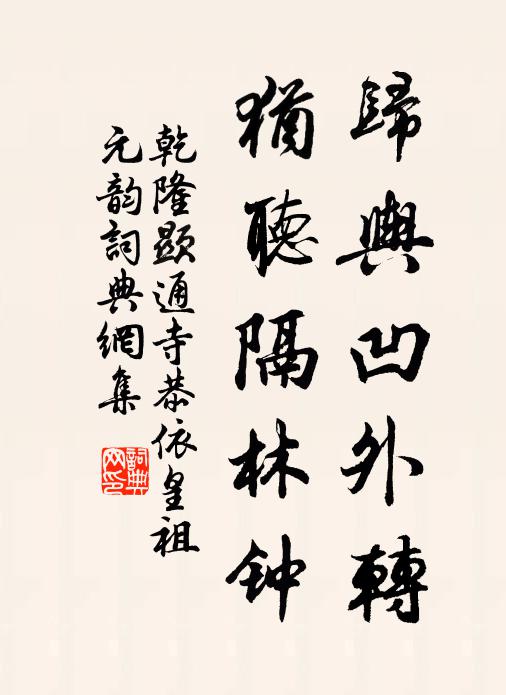 歸輿凹外轉
猶聽隔林钟
乾隆顯通寺恭依皇祖
元韵詞典網集
詞典网印